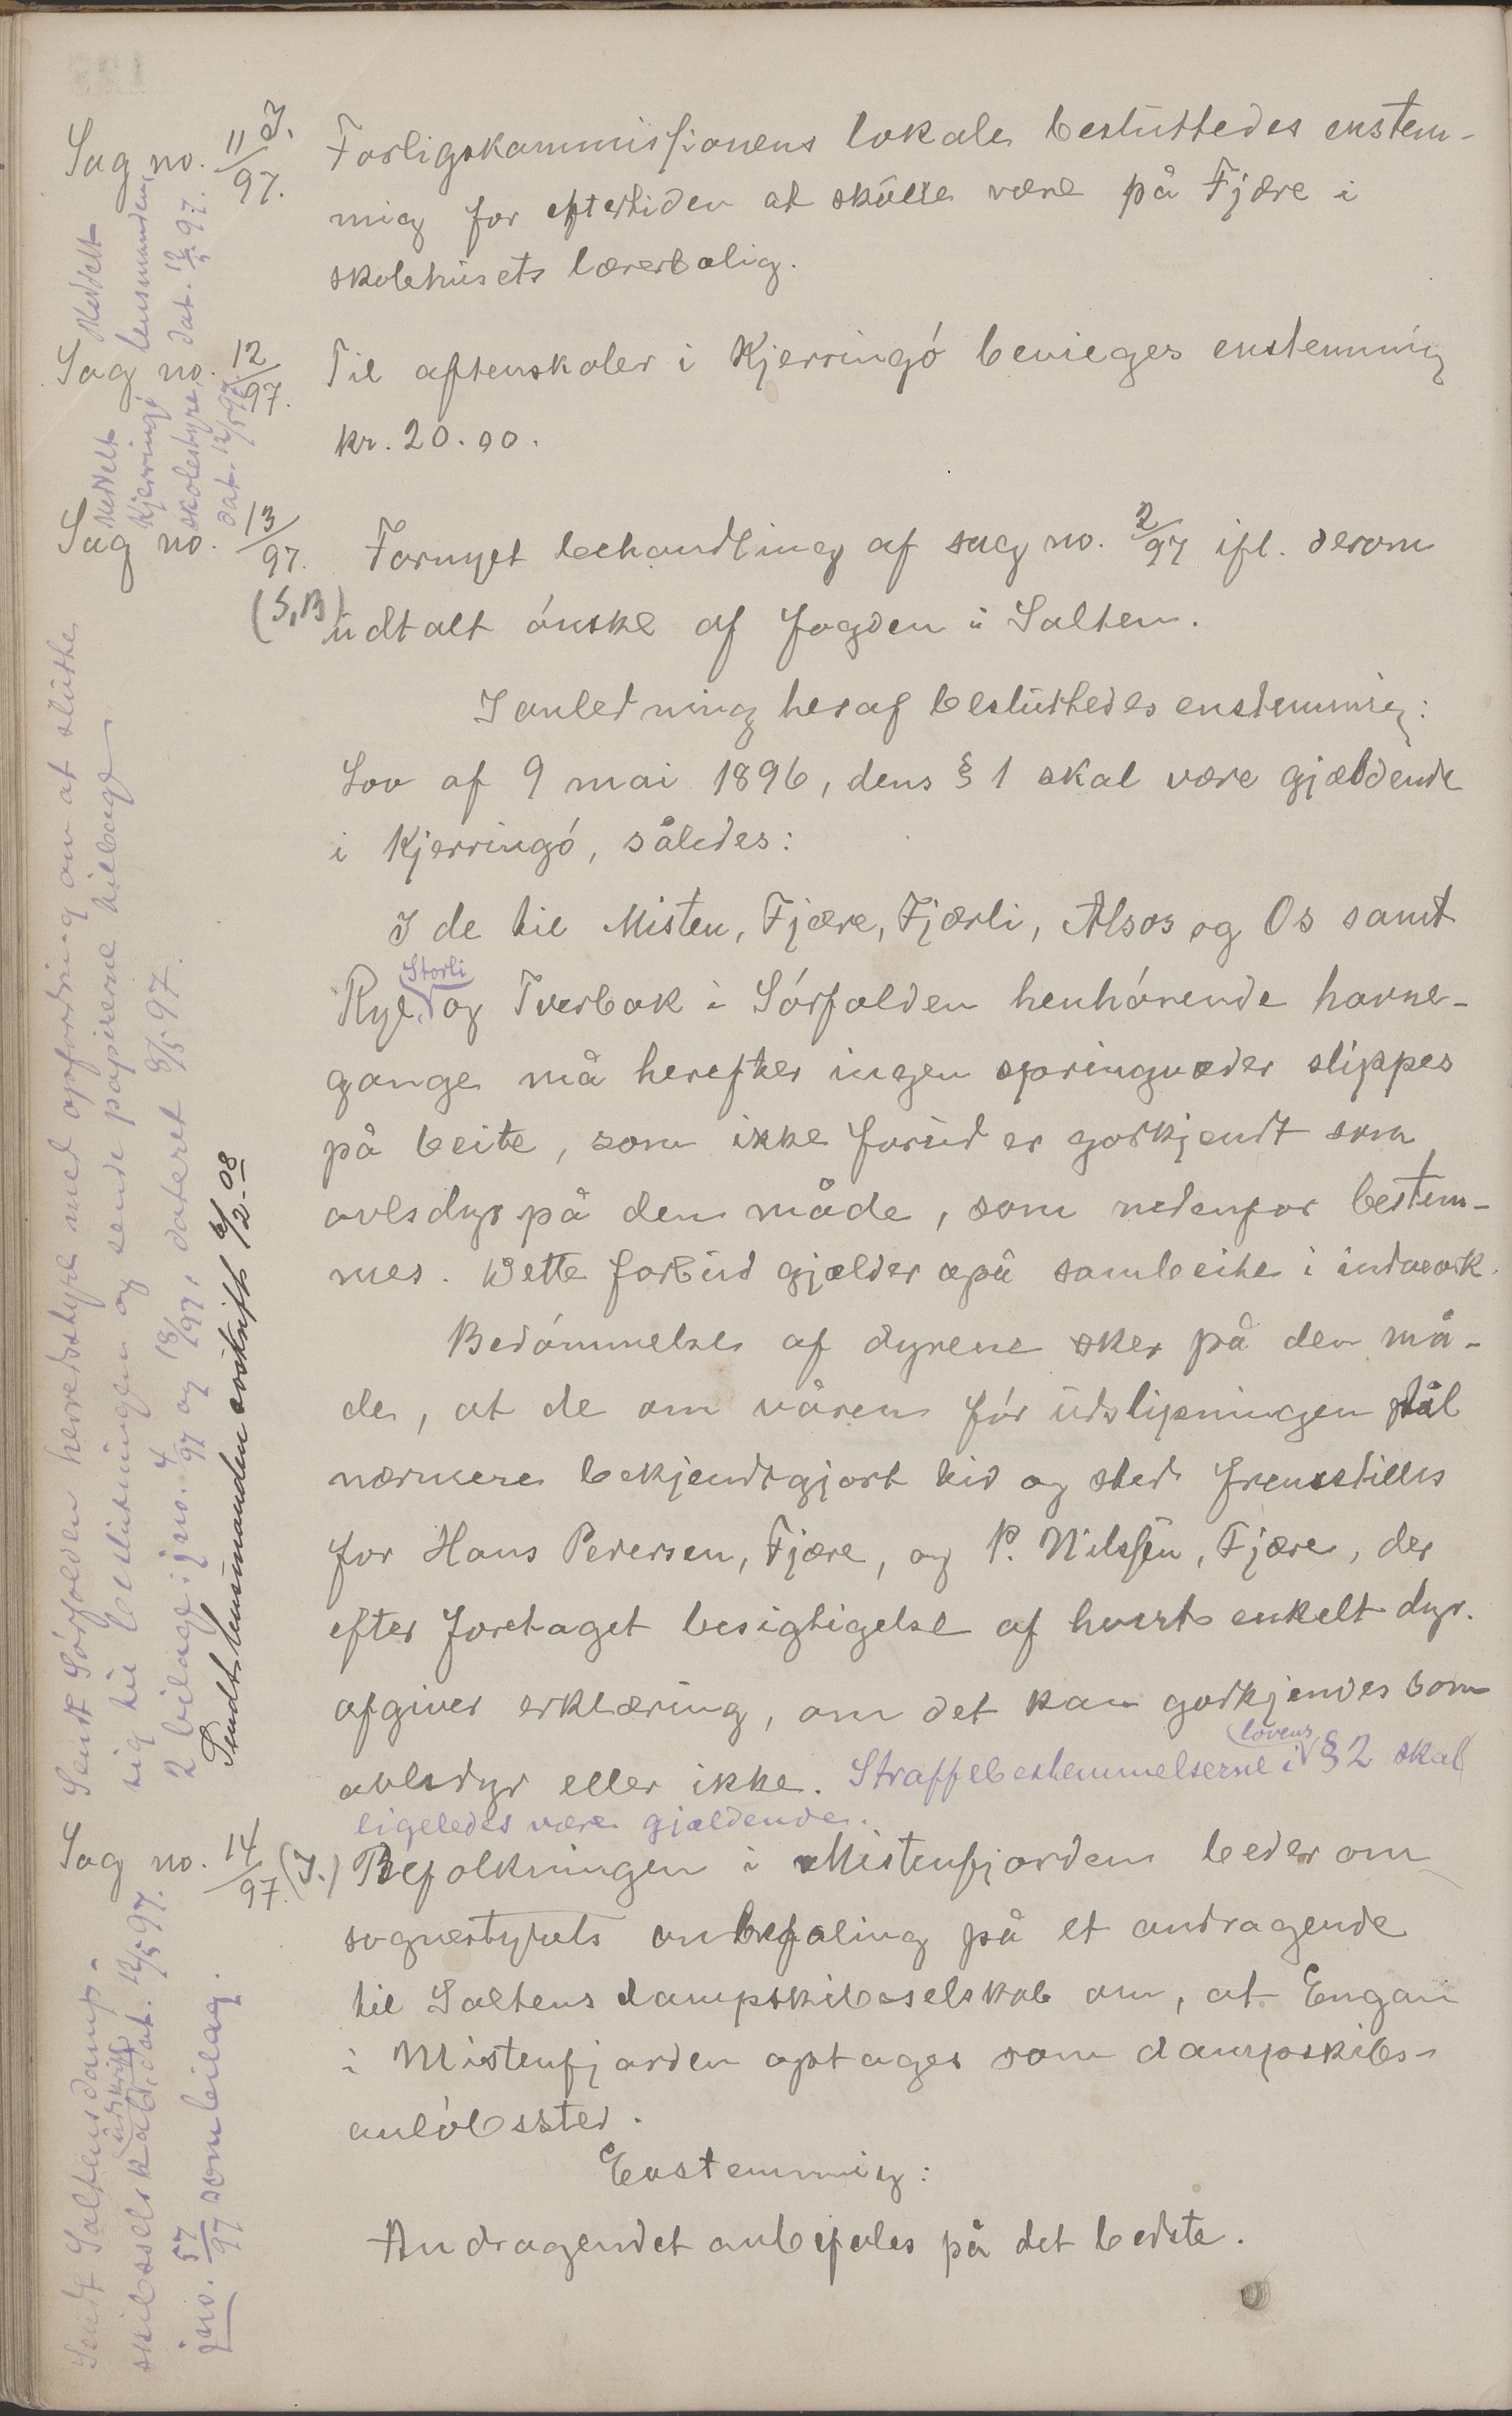 Sag no. 11/97. J.
Forligskommissionens lokale besluttedes enstem-
mig for eftertiden at skulle være på Fjære i
skolehusets lærerbolig.
Meddelt lensmanden
dat. 12/5 97.
Sag no. 12/97.
Til aftenskoler i Kjerringó bevilges enstemmig
kr. 20.00.
Meddelt
Kjerringó
skolestyre,
dat. 12/5 97.
Sag no. 13/97.
(S, B)
Fornyet behandling af sag no. 2/97 ifl. derom
udtalt ónske af fogden i Salten.
I anledning heraf besluttedes enstemmig:
Lov af 9 mai 1896, dens § 1 skal være gjældende
i Kjerringó, således:
I de til Misten, Fjære, Fjærli, Alsos og Os samt
Storli
Ryl, og Tverbak i Sórfolden henhórende havne-
gange må herefter ingen springvæder slippes
på beite, som ikke forud er godkjendt som
avlsdyr på den måde, som nedenfor bestem-
mes. Dette forbud gjælder også sambeite i indmark.
Bedómmelse af dyrene sker på den må-
de, at de om våren fór udslipningen på
nærmere bekjendtgjort tid og sted fremstilles
for Hans Pedersen, Fjære, og P. Nilssen, Fjære, der
efter foretaget besigtigelse af hvert enkelt dyr
afgiver erklæring, om det kan godkjendes som
avlsdyr eller ikke. Straffebestemmelserne i lovens § 2 skal
ligeledes være gjældende.
Sendt Sórfolden herredsstyre med opfordring om at slutte
sig til beslutningen og sende papirerne tilbage
2 bilage: jno. 4/97 og 18/97, dateret 8/5 97.
Sendt lensmanden avskrift 6/2-08
Sag no. 14/97. (J.)
Befolkningen i Mistenfjorden beder om
sognestyrets anbefaling på et andragende
til Saltens dampskibsselskab om, at Engan
i Mistenfjorden optages som dampskibs-
anlóbssted.
Enstemmig:
Andragendet anbefales på det bedste.
Sendt Saltens damp-
skibsselskab udskrift, dat. 12/5 97.
jno. 57/97 som bilag.